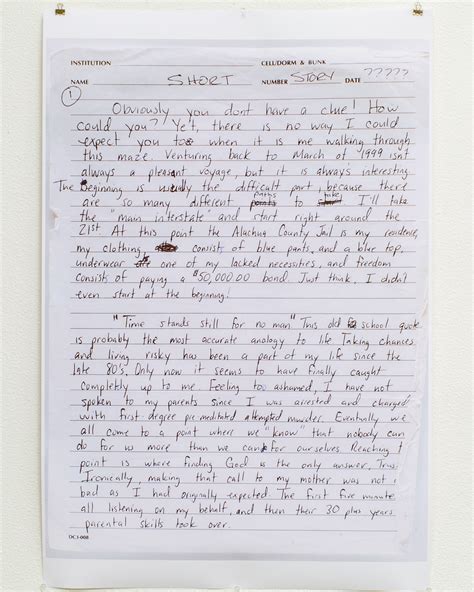 INSTITUTION CELL/DORM & BUNK
NAME SHORT NUMBER STORY DATE ?????
1
Obviously you dont have a clue! How
could you? Yet, there is no way I could
expect you too when it is me walking through
this maze. Venturing back to March of 1999 isnt
always a pleasant voyage, but it is always interesting.
The Beginning is usually the difficult part, because there
are so many different paths to take. I'll take
the "main interstate" and start right around the
21st. At this point the Alachua County Jail is my residence,
my clothing, consist of blue pants, and a blue top,
underwear one of my lacked necessities, and freedom
consists of paying a $50,000.00 bond. Just think, I didn't
even start at the beginning!
"Time stands still for no man." This old school quote
is probably the most accurate anology to life. Taking chances
and living risky has been a part of my life since the
late 80's. Only now it seems to have finally caught
completely up to me. Feeling too ashamed, I have not
spoken to my parents since I was arrested and charged
with first degree pre meditated attempted murder. Eventually we
all come to a point where we "know" that nobody can
do for us more than we can for ourselves. Reaching
point is where finding God is the only answer.
Ironically, making that call to my mother was not
bad as I had originally expected. The first five minute
all listening on my behalf, and then their 30 plus years
parental skills took over.
DC1-008